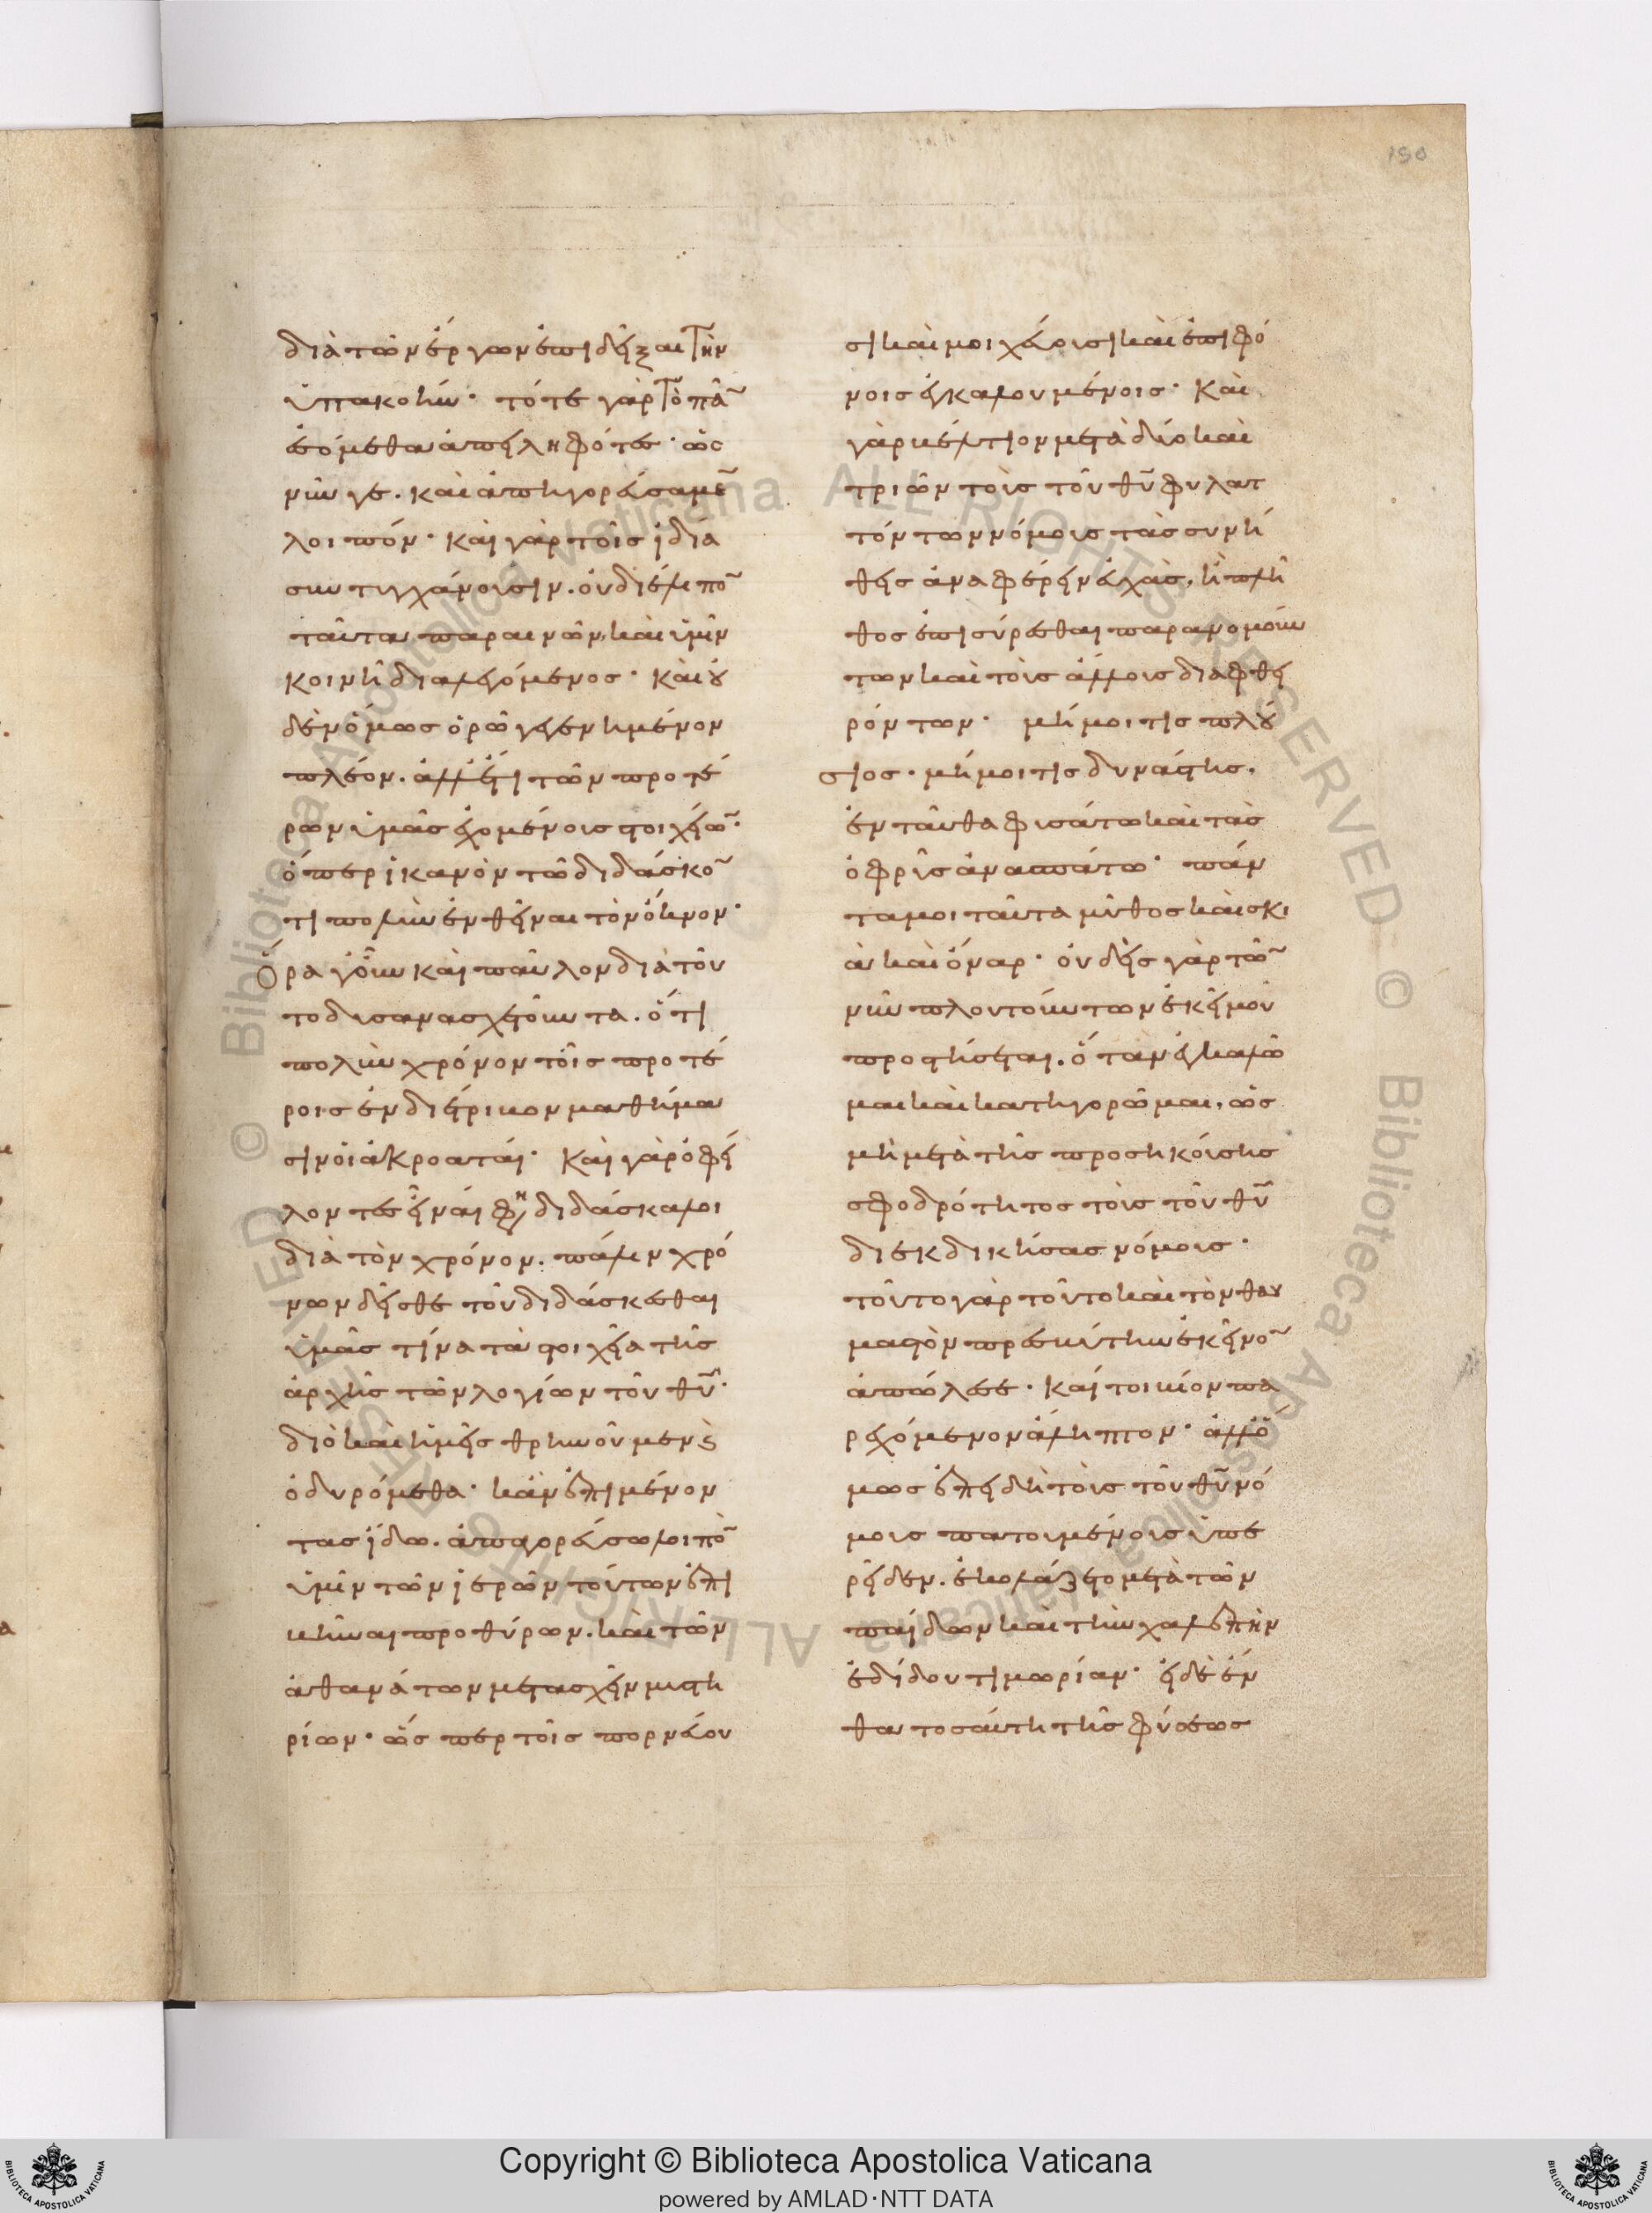 150
διὰ τῶν ἔργων ἐπιδεῖξαι τὴν
ὑπακοήν· τότε γὰρ τὸ πᾶν
ἐσόμεθα ἀπειληφότες· ὡς
νῦν γε. καὶ ἀπηγορεύσαμεν
λοιπόν· καὶ γὰρ τοῖς ἰδίᾳ
συντυγχάνουσιν. οὐ διέλιπον
ταῦτα παραινῶν, καὶ ὑμῖν
κοινῆ διαλεγόμενος· καὶ οὐ
δὲν ὅμως ὁρῶ γεγενημένον
πλέον. ἀλλ' ἔτι τῶν προτέ
ρων ὑμᾶς ἐχομένους στοιχείων·
ὅπερ ἱκανὸν τῶ διδάσκον
τι πολὺν ἐνθεῖναι τὸν ὄκνον·
Ὅρα γοῦν καὶ παῦλον διὰ τοῦ
το δυσανασχετοῦντα. ὅτι
πολὺν χρόνον τοῖς προτέ
ροις ἐνδιέτριβον μαθήμα
σιν οἱ ἀκροαταί· Καὶ γὰρ ὀφεί
λοντες εἶναι φη διδάσκαλοι
διὰ τὸν χρόνον. πάλιν χρό
νων δεῖσθε τοῦ διδάσκεσθαι
ὑμᾶς τίνα τὰ στοιχεῖα τῆς
ἀρχῆς τῶν λογίων τοῦ θυ·
διὸ καὶ ἡμεῖς θρηνοῦμεν καὶ
ὀδυρόμεθα· κἂν ἐπιμένον
τας ἴδω. ἀπαγορεύσω λοιπὸν
ὑμῖν τῶν ἱερῶν τούτων ἐπι
βῆναι προθύρων. καὶ τῶν
ἀθανάτων μετασχεῖν μυστη
ρίων· ὥσπερ τοῖς πορνεύου
σι καὶ μοιχεύουσι καὶ ἐπὶ φό
νοις ἐγκαλουμένοις· Καὶ
γὰρ βέλτιον μετὰ δύο καὶ
τριῶν τοὺς τοῦ θυ φυλατ
τόντων νόμους τὰς συνή
θεις ἀναφέρειν εὐχὰς, ἢ πλῆ
θος ἐπισύρεσθαι παρανομούν
των καὶ τοὺς ἄλλους διαφθει
ρόντων· μή μοί τις πλού
σιος. μή μοί τις δυνάστης.
ἐνταῦθα φυσάτω καὶ τὰς
ὀφρῦς ἀνασπάτω· πάν
τα μοι ταῦτα μῦθος καὶ σκι
ὰ καὶ ὄναρ· οὐδεὶς γὰρ τῶν
νῦν πλουτούντων ἐκεῖ μου
προστήσεται. ὅταν ἐγκαλῶ
μαι καὶ κατηγορῶμαι, ὡς
μὴ μετὰ τῆς προσηκούσης
σφοδρότητος τοὺς τοῦ θυ
διεκδικήσας νόμους·
τοῦτο γὰρ τοῦτο καὶ τὸν θαυ
μαστὸν πρεσβύτην ἐκεῖνον
ἀπώλεσε· καίτοι βίον πα
ρεχόμενον ἄληπτον· ἀλλ' ὅ
μως ἐπειδὴ τοὺς τοῦ θυ νό
μους πατουμένους ὑπε
ρεῖδεν. ἐκολάζετο μετὰ τῶν
παίδων καὶ τὴν χαλεπὴν
ἐδίδου τιμωρίαν· εἰ δὲ ἔν
θα τοσαύτη τῆς φύσεως
Copyright © Biblioteca Apostolica Vaticana
powered by AMLAD·NTT DATA